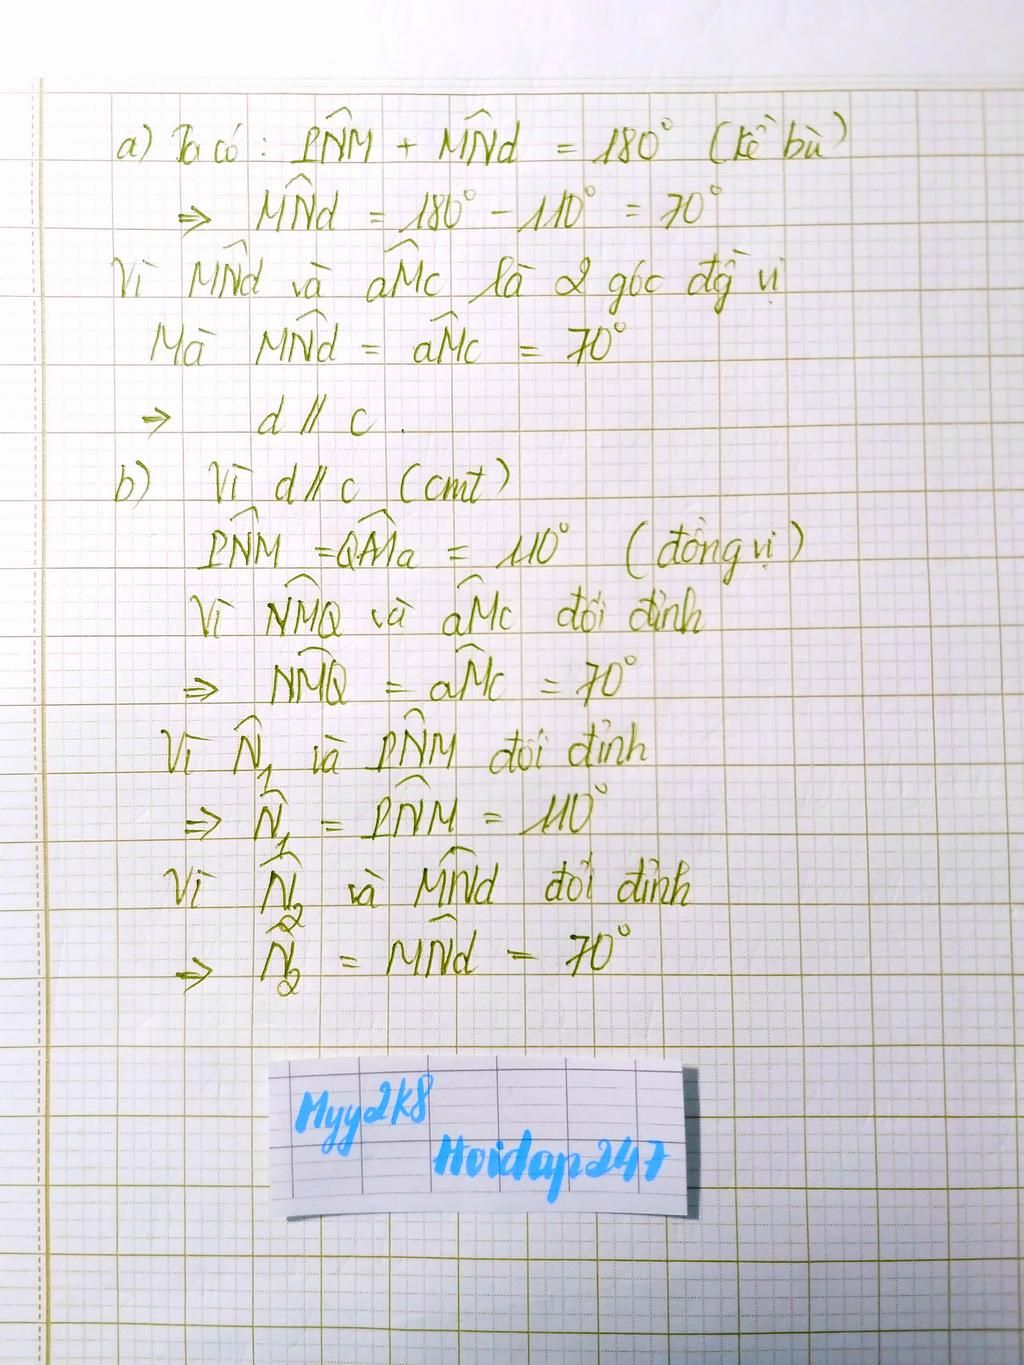 a) Ta có : PNM + MNd = 180° (kề bù)
⇒ MNd = 180° - 110° = 70°
Vì MNd và aMc là 2 góc đg vị
Mà MNd = aMc = 70°
⇒ d // c .
b) Vì d // c (cmt)
PNM = QMa = 110° (đồng vị)
Vì NMQ và aMc đối đỉnh
⇒ NMQ = aMc = 70°
Vì N̂₁ và PNM đối đỉnh
⇒ N̂₁ = PNM = 110°
Vì N̂₂ và MNd đối đỉnh
⇒ N̂₂ = MNd = 70°
Myy2k8
Hoidap247